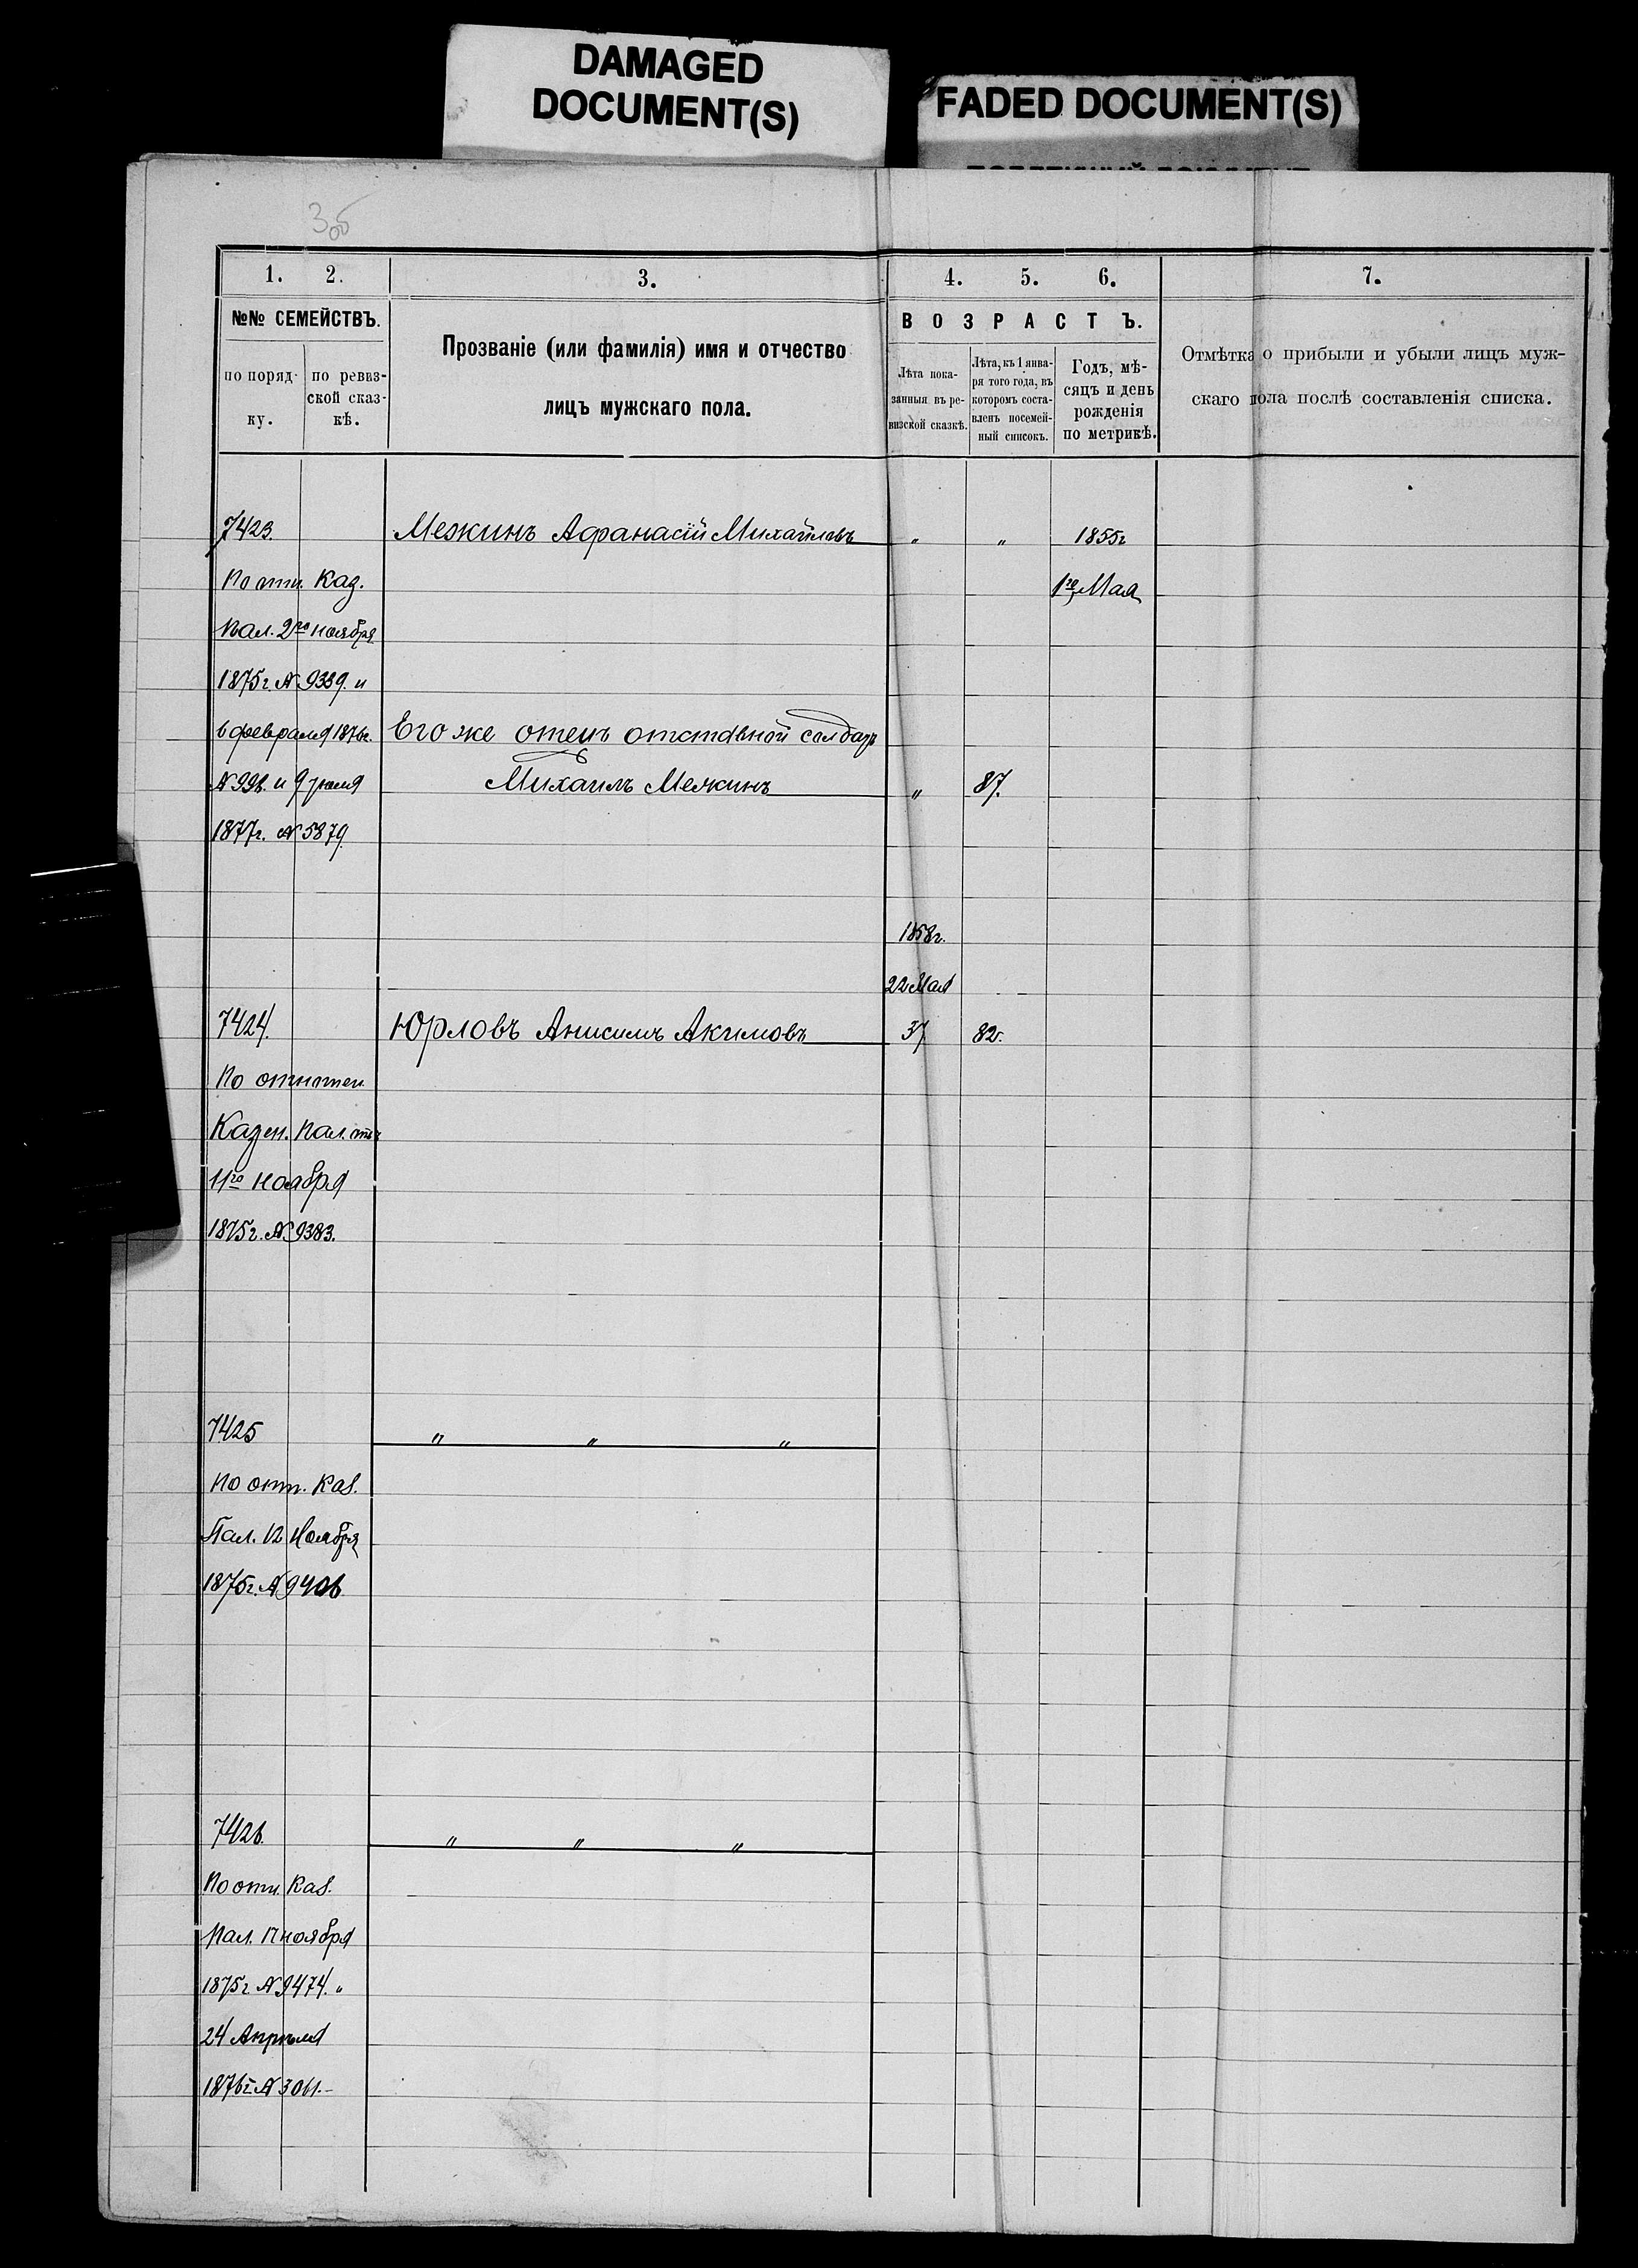 DAMAGED
DOCUMENT(S)
FADED DOCUMENT(S)
3об
1. 2. 3. 4. 5. 6. 7.
№№ СЕМЕЙСТВЪ.
по поряд-
ку.
по ревиз-
ской сказ-
кѣ.
Прозваніе (или фамилія) имя и отчество
лицъ мужскаго пола.
ВОЗРАСТЪ.
Лѣта пока-
занныя въ ре-
визской сказкѣ.
Лѣта, къ 1 янва-
ря того года, въ
которомъ соста-
вленъ посемей-
ный списокъ.
Годъ, мѣ-
сяцъ и день
рожденія
по метрикѣ.
Отмѣтка о прибыли и убыли лицъ муж-
скаго пола послѣ составленія списка.
7423. Межинъ Афанасій Михайловъ " " 1855г
По отн. Каз. 1го Мая
пал. 2го ноября
1875г. № 9339. и
6 февраля 1876г. Его же отецъ отставной солдатъ
№ 996. и 9 іюля Михаилъ Межинъ " 87.
1877г. № 5879.
1858г.
22 Мая
7424. Юрловъ Анисимъ Акимовъ 37 82.
По отнотен.
Казен. пал. отъ
11го ноября
1875г. № 9383.
7425 " " "
по отн. Каз.
Пал. 12 Ноября
1875г. № 9406
7426. " " "
По отн. Каз.
Пал. 17 ноября
1875г № 9474. "
24 Апрѣля
1876г. № 3061.-